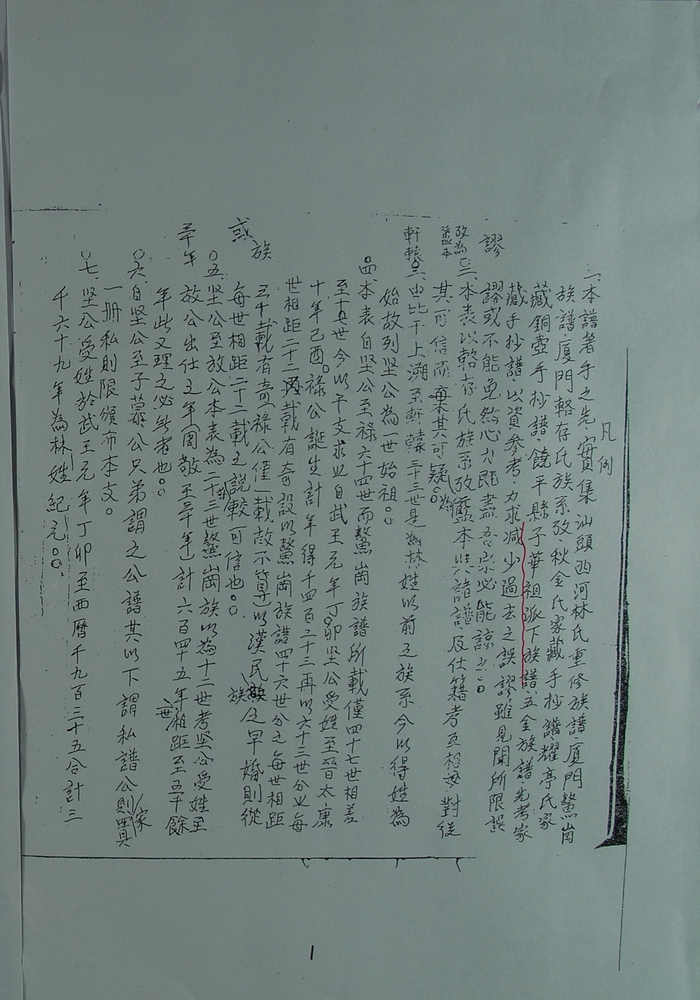 凡例
一、本譜著手之先實集汕頭西河林氏重修族譜廈門鰲崗
族譜廈門輅存氏族系攷秋金氏家藏手抄譜耀亭氏家
藏銅壺手抄譜饒平縣子華祖派下族譜五全族譜先考家
藏手抄譜以資參考力求減少過去之誤謬雖見聞所限誤
謬或不能免然心力既盡吾宗必能諒之
謬
二、本表以輅存氏族系攷為藍本與諸譜及仕籍考互相對從
攷為藍本
其可信而棄其可疑
三、由比干上溯至軒轅三十三世是為林姓以前之族系今以得姓為
軒轅
始故列坚公為一世始祖
四本表自坚公至祿六十四世而鰲崗族譜所載僅四十七世相差
至十七世今以干支求之自武王元年丁卯坚公受姓至晉太康
十年己酉祿公誕生計年得千四百二十三再以六十三世分之每
世相距二十二載有奇設以鰲崗族譜四十六世分之每世相距
三十載有奇祿公僅一載故不算以漢民族之早婚則從
族
每世相距二十二載之說較可信也
或
五、坚公至放公本表為二十三世鰲崗族以為十二世考坚公受姓至
放公出仕之年周敬王三十年計六百四十五年世相距至五十餘
三十年
年此又理之必無者也
六、自坚公至子慕公兄弟謂之公譜其以下謂私譜公則買
家
一冊私則限頒布本支。
七、坚公受姓於武王元年丁卯至西曆千九百三十五合計三
千六十九年為林姓紀元
1